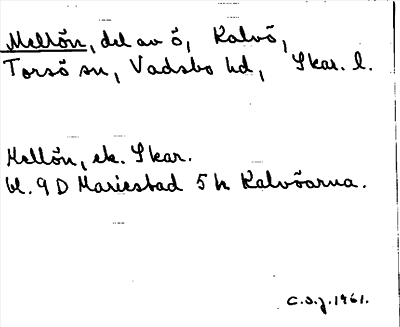 Mellön, del av ö, Kalvö,
Torsö sn, Vadsbo hd, Skar. l.
Mellön, ek. Skar.
bl. 9 D Mariestad 5 h Kalvöarna.
C.O.J. 1961.